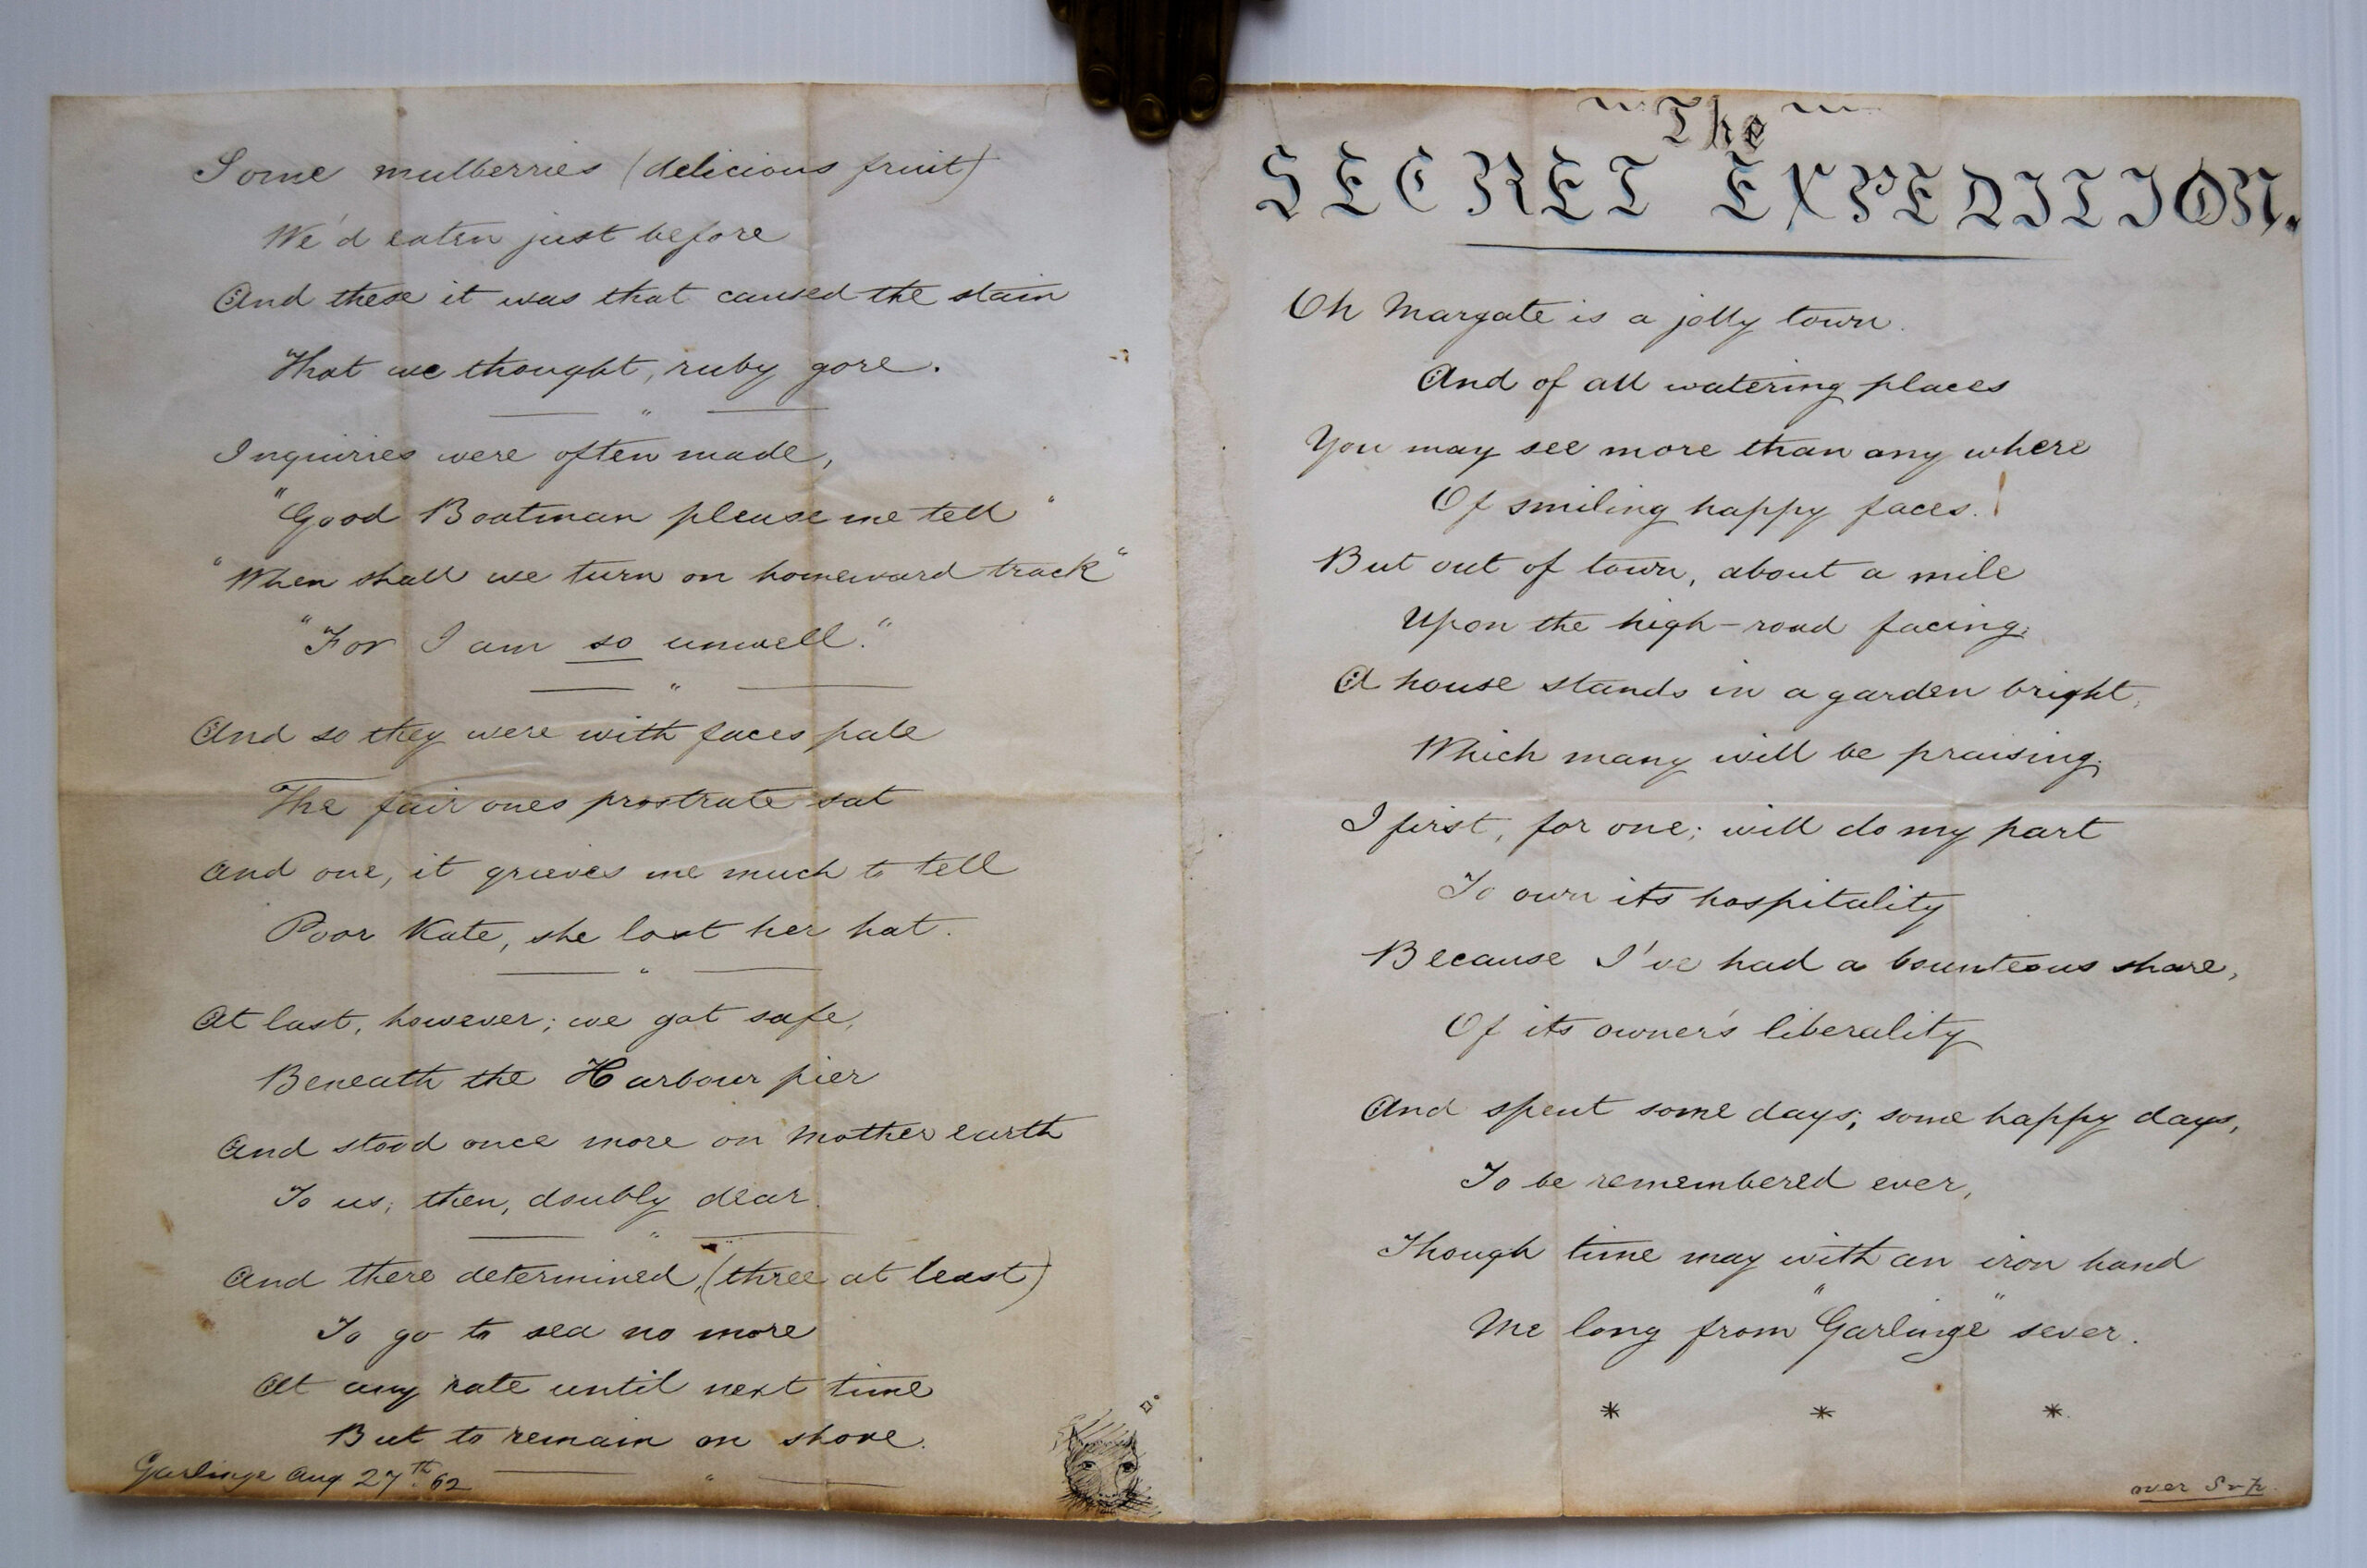 Some mulberries (delicious fruit)
We'd eaten just before
And these it was that caused the stain
That we thought, ruby gore.
Inquiries were often made,
"Good Boatman please me tell"
"When shall we turn on homeward track"
"For I am so unwell."
And so they were with faces pale
The fair ones prostrate sat
And one, it grieves me much to tell
Poor Kate, she lost her hat.
At last, however; we got safe,
Beneath the Harbour pier
And stood once more on Mother earth
To us; then, doubly dear.
And there determined, (three at least)
To go to sea no more
At any rate until next time
But to remain on shore.
Garlinge Aug 27th. 62
The
SECRET EXPEDITION.
Oh Margate is a jolly town.
And of all watering places
You may see more than any where
Of smiling happy faces.!
But out of town, about a mile
Upon the high-road facing;
A house stands in a garden bright,
Which many will be praising.
I first, for one; will do my part
To own its hospitality
Because I've had a bounteous share,
Of its owner's liberality
And spent some days; some happy days,
To be remembered ever,
Though time may with an iron hand
Me long from "Garlinge" sever.
* * *
over